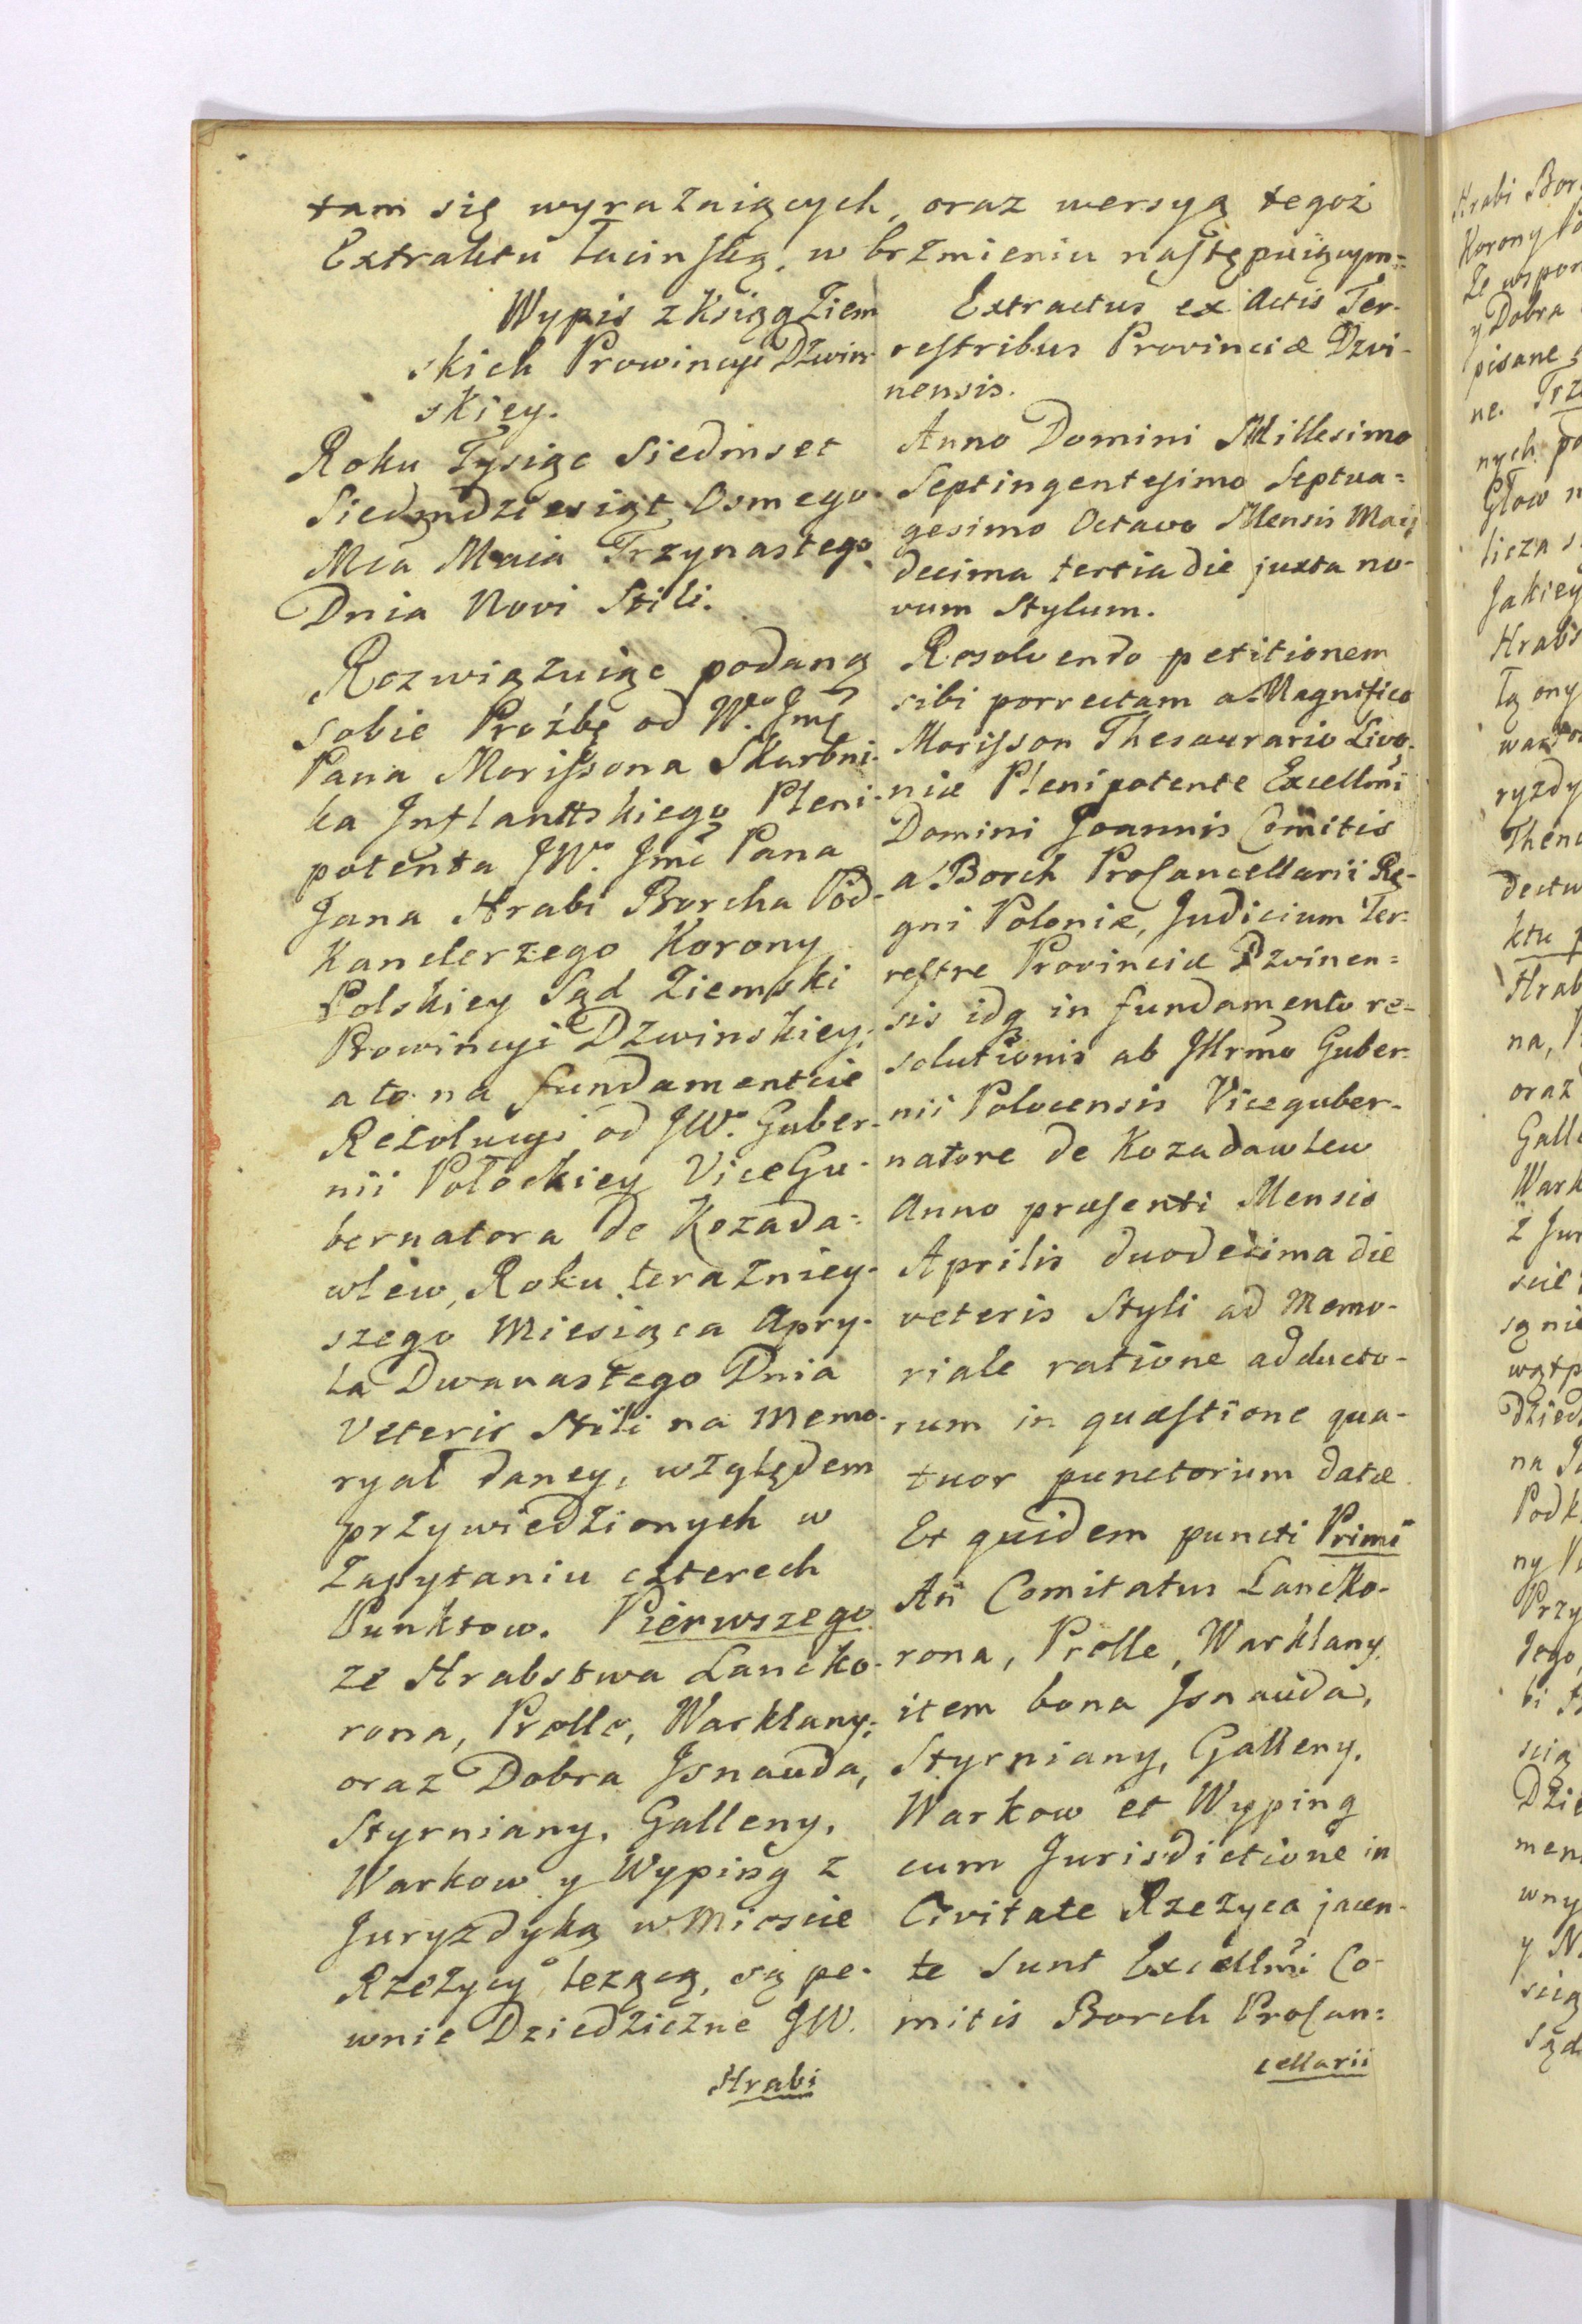 tam się wyraznaiących, oraz wersyą tegoż
Extraktu łacinską, w brzmieniu następuiącym=
Wypis z Ksiąg Ziem
skich Prowincyi Dzwin
skiey.
Roku Tysiąc Siedmset
Siedmdziesiąt Osmego
Mca Maia Trzynastego
Dnia Novi Stili.
Rozwiązuiąc podaną
sobie Proźbę od W.º Jmć
Pana Morissona Skarbni-
ka Inflanttskiego Pleni-
potenta JW.º Jmć Pana
Jana Hrabi Borcha Pod-
Kanclerzego Korony
Polskiey Sąd Ziemski
Prowincyi Dzwinskiey,
a to na fundamentcie
Rezolucyi od JW.º Guber-
nii Połockiey ViceGu-
bernatora de Kozada=
wlew, Roku terazniey-
szego Miesiąca Apry-
la Dwanastego Dnia
Veteris Stili na Memo-
ryał daney, względem
przywiedzionych w
Zapytaniu czterech
Punktow. Pierwszego
ze Hrabstwa Lancko-
rona, Prolle, Warklany;
oraz Dobra Isnauda,
Styrniany, Galleny,
Warkow y Wyping z
Juryzdyką w Miescie
Rzezycy lezącą, są pe-
wnie Dziedziczne JW.
Hrabi
Extractus ex Actis Ter-
restribus Provinciæ Dzvi-
nensis.
Anno Domini Millesimo
Septingentesimo Septua=
gesimo Octavo Mensis Maij
decima tertia die juxta no-
vum Stylum.
Resolvendo petitionem
sibi porrectam a Magnifico
Morisson Thesaurario Livo-
niæ Plenipotente Excellmi
Domini Joannis Comitis
a Borch ProCancellarii Re-
gni Poloniæ, Judicium Ter-
restre Provinciæ Dzvinen=
sis idq in fundamento re-
solutionis ab Illrmo Guber-
nii Polocensis Viceguber-
natore de Kozadawlew
Anno præsenti Mensis
Aprilis duodecima die
veteris Styli ad Memo-
riale ratione adducto-
rum in quæstione qua-
tuor punctorum datæ
Et quidem puncti Primi
An Comitatus Lancko-
rona, Prolle, Warklany,
item bona Isnauda,
Styrniany, Galleny,
Warkow et Wyping
cum Jurisdictione in
Civitate Rzezyca jacen-
te sunt Excellmi Co-
mitis Borch ProCan=
cellarii